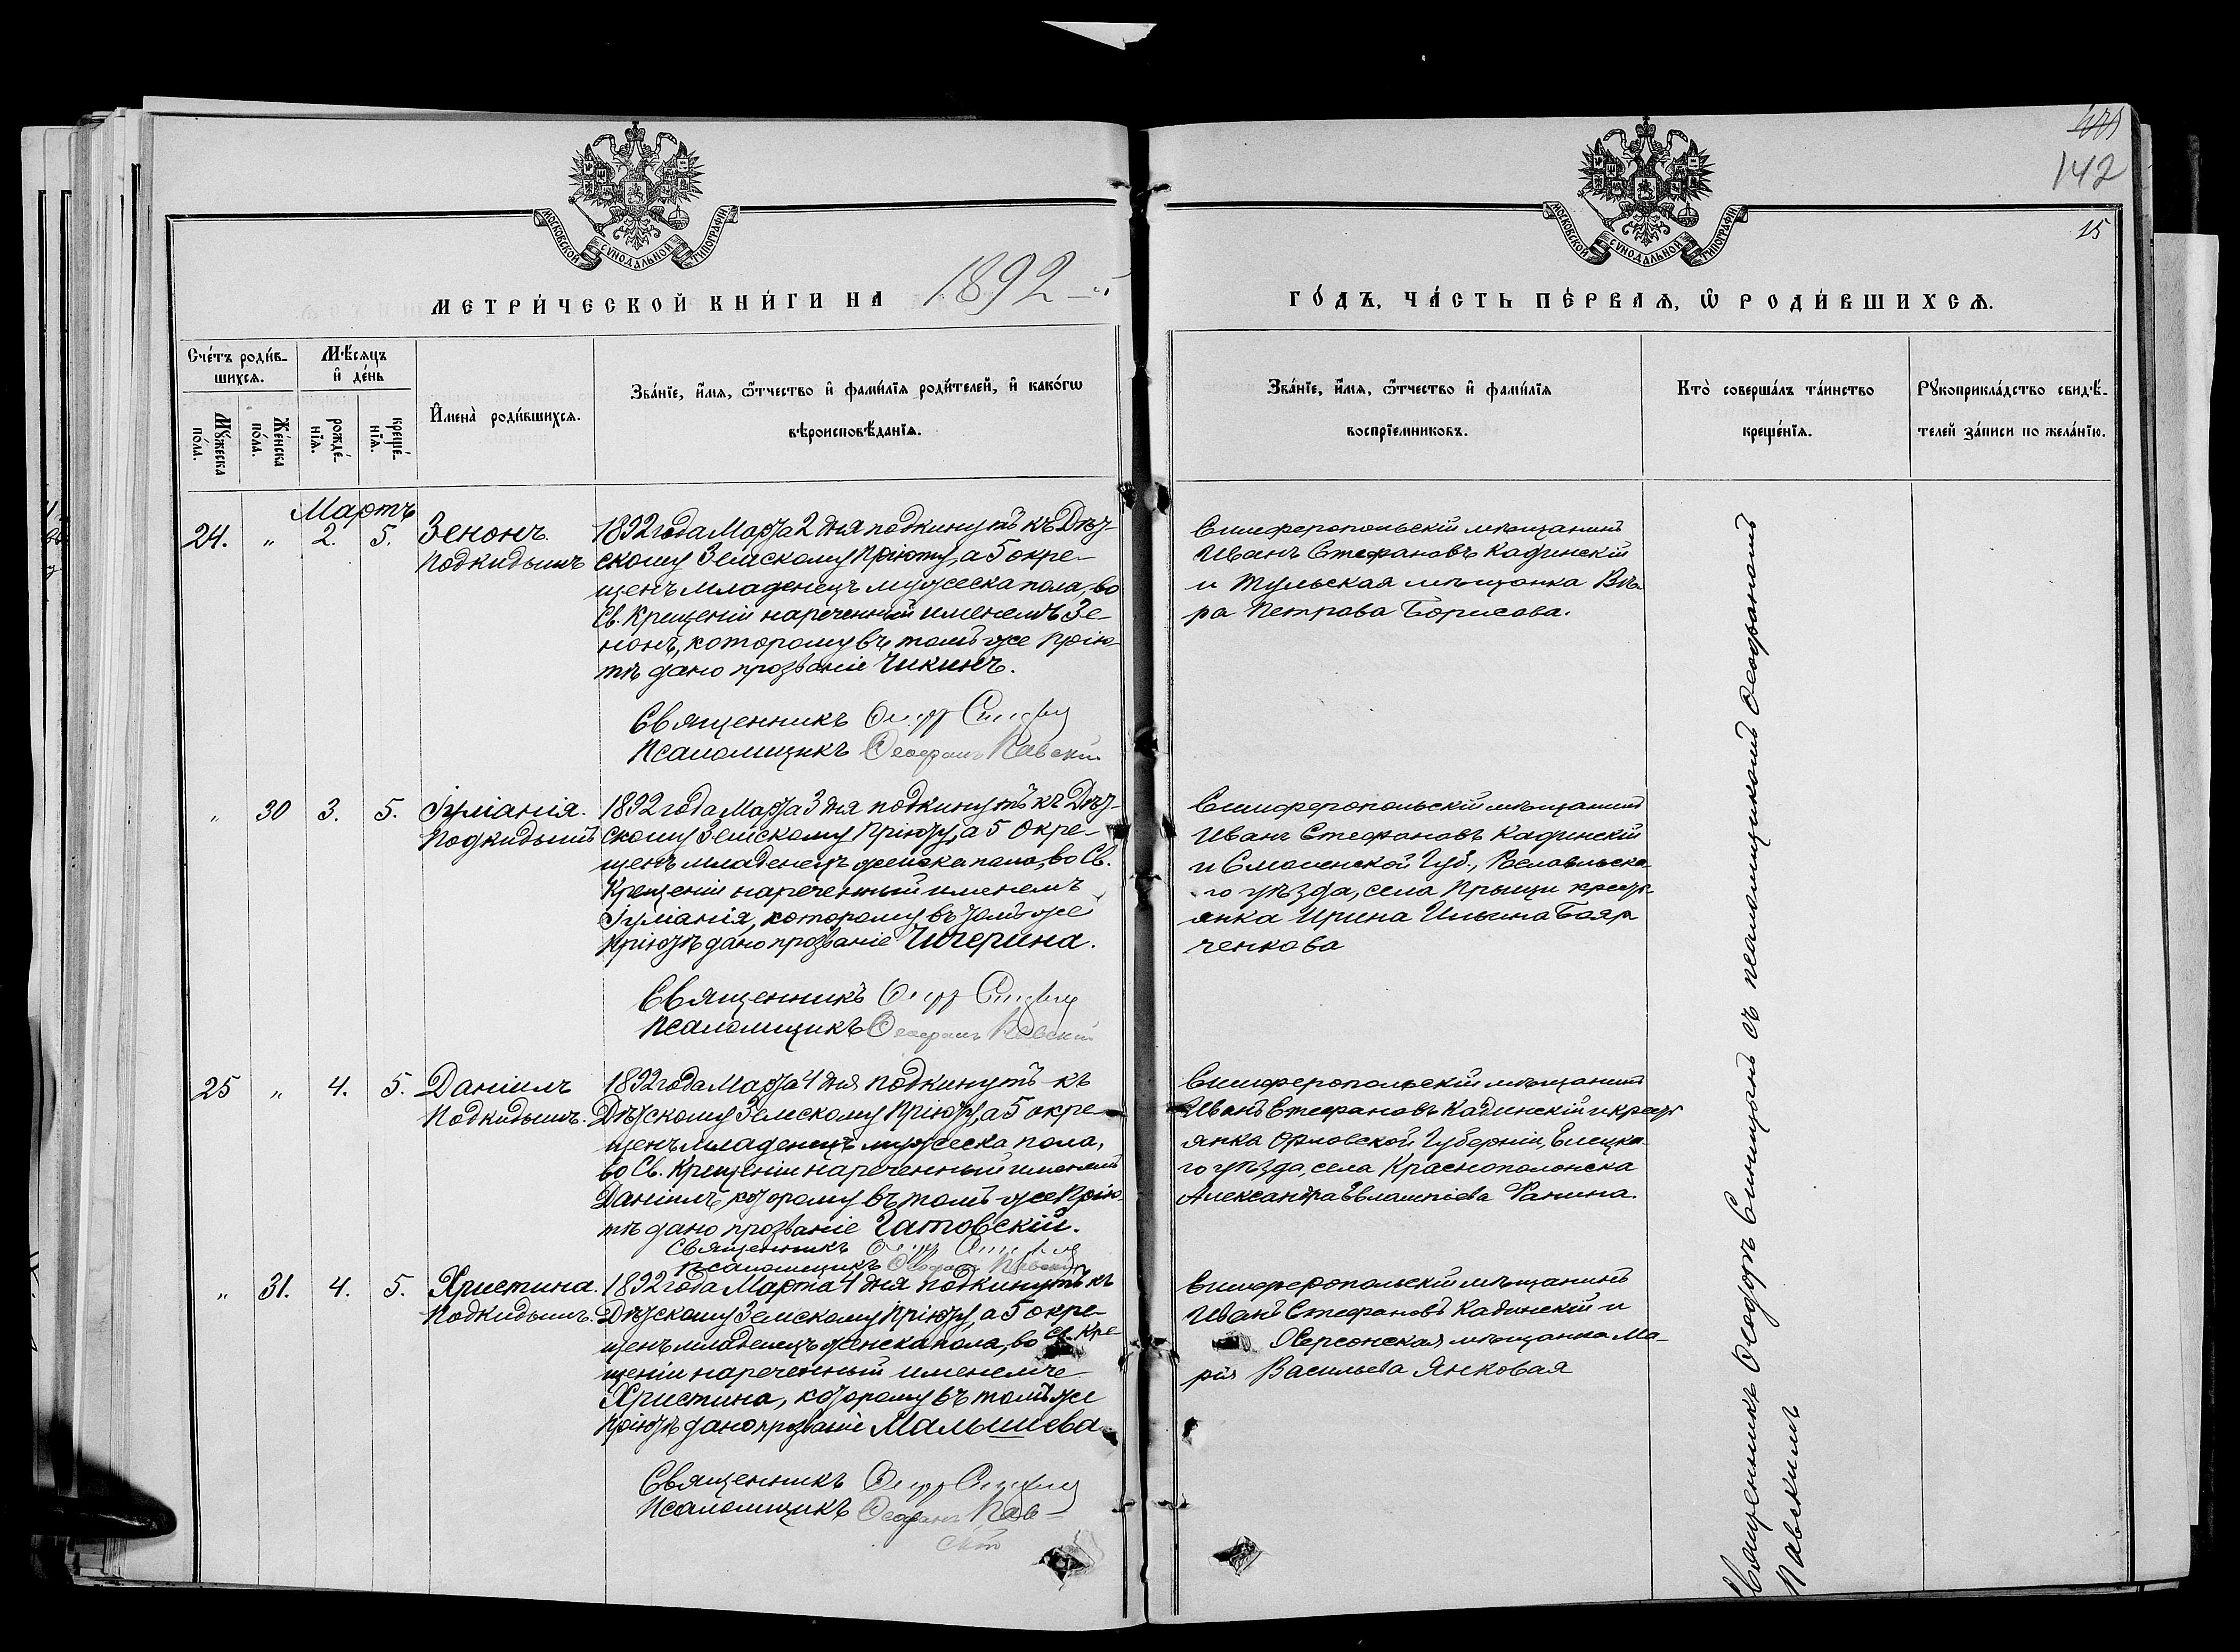 142
15
МОСКОВСКОЙ СУНОДАЛЬНОЙ ТИПОГРАФІИ
МОСКОВСКОЙ СУНОДАЛЬНОЙ ТИПОГРАФІИ
МЕТРИ́ЧЕСКОЙ КНИ́ГИ НА 1892-й
ГО́ДЪ, ЧА́СТЬ ПЕ́РВАѦ, Ѿ РОДИ́ВШИХСѦ.
Сче́тъ роди́в-
шихсѧ.
Мꙋ́жеска по́ла.
Же́нска по́ла.
Мѣ́сѧцъ
и҆ де́нь
рожде́-
нїѧ.
креще́-
нїѧ.
И҆мена̀ роди́вшихсѧ.
Зва́нїе, и҆́мѧ, ѻ҆́тчество и҆ фами́лїѧ роди́телей, и҆ како́гѡ
вѣроисповѣ́данїѧ.
Зва́нїе, и҆́мѧ, ѻ҆́тчество и҆ фами́лїѧ
воспрїемниковъ.
Кто̀ соверша́лъ та́инство
креще́нїѧ.
Рꙋкоприкла́дство свидѣ́-
телей за́писи по жела́нїю.
Мартъ
24. " 2. 5. Зенонъ.
Подкидышъ
1892 года Марта 2 дня подкинутъ къ Дѣт-
скому Земскому Пріюту, а 5 окре-
щенъ младенецъ мужеска пола, во
Св. Крещеніи нареченный именемъ Зе-
нонъ, которому въ томъ же Прію-
тѣ дано прозваніе Чикинъ.
Священникъ
Псаломщикъ Ѳеофанъ Павскій
Симферопольскій мѣщанинъ
Иванъ Стефановъ Кадинскій
и Тульская мѣщанка Вѣ-
ра Петрова Борисова.
" 30 3. 5. Іуліанія.
Подкидышъ
1892 года Марта 3 дня подкинутъ къ Дѣт-
скому Земскому Пріюту, а 5 окре-
щенъ младенецъ женска пола, во Св.
Крещеніи нареченный именемъ
Іуліанія, которому въ томъ же
Пріютѣ дано прозваніе Чичерина.
Священникъ
Псаломщикъ Ѳеофанъ Павскій
Симферопольскій мѣщанинъ
Иванъ Стефановъ Кадинскій
и Смоленской Губ., Рославльска-
го уѣзда, села Прыщи крест-
янка Ирина Ильина Бояр
ченкова
25 " 4. 5. Даніилъ
Подкидышъ.
1892 года Марта 4 дня подкинутъ къ
Дѣтскому Земскому Пріюту, а 5 окре-
щенъ младенецъ мужеска пола,
во Св. Крещеніи нареченный именемъ
Даніилъ, которому въ томъ же Прію-
тѣ дано прозваніе Чатовскій.
Священникъ
Псаломщикъ Ѳеофанъ Павскій
Симферопольскій мѣщанинъ
Иванъ Стефановъ Кадинскій и крест
янка Орловской Губерніи, Елецка-
го уѣзда, села Краснополонска
Александра Евлампіева Фанина.
" 31. 4. 5. Христина.
Подкидышъ.
1892 года Марта 4 дня подкинутъ къ
Дѣтскому Земскому Пріюту, а 5 окре-
щенъ младенецъ женска пола, во Св. Кре-
щеніи нареченный именемъ
Христина, которому въ томъ же
Пріютѣ дано прозваніе Малышева.
Священникъ
Псаломщикъ Ѳеофанъ Пав-
скій
Симферопольскій мѣщанинъ
Иванъ Стефановъ Кадинскій и
Херсонская мѣщанка Ма-
рія Васильева Янковая
Священникъ Ѳеодоръ Синицынъ съ псаломщикомъ Ѳеофаномъ
Павскимъ